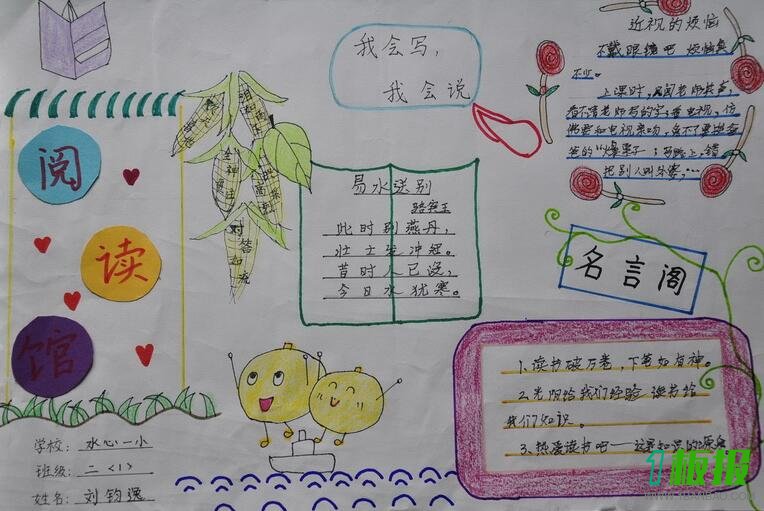 阅
读
馆
学校：水心一小
班级：二〈1〉
姓名：刘钧逸
对答如流
我会写，
我会说
易水送别
骆宾王
此时别燕丹，
壮士发冲冠。
昔时人已没，
今日水犹寒。
近视的烦恼
不戴眼镜吧 烦恼真
不少。
上课时，
看不清老师写的字；看电视，仿
佛要和电视亲吻，免不了要挨爸
爸的“爆栗子”；马路上，错
把别人叫
名言阁
1.读书破万卷，下笔如有神。
2.太阳给我们经验 读书给
我们知识。
3.热爱读书吧——这是知识的源泉
1板报
WWW.1BANBAO.COM